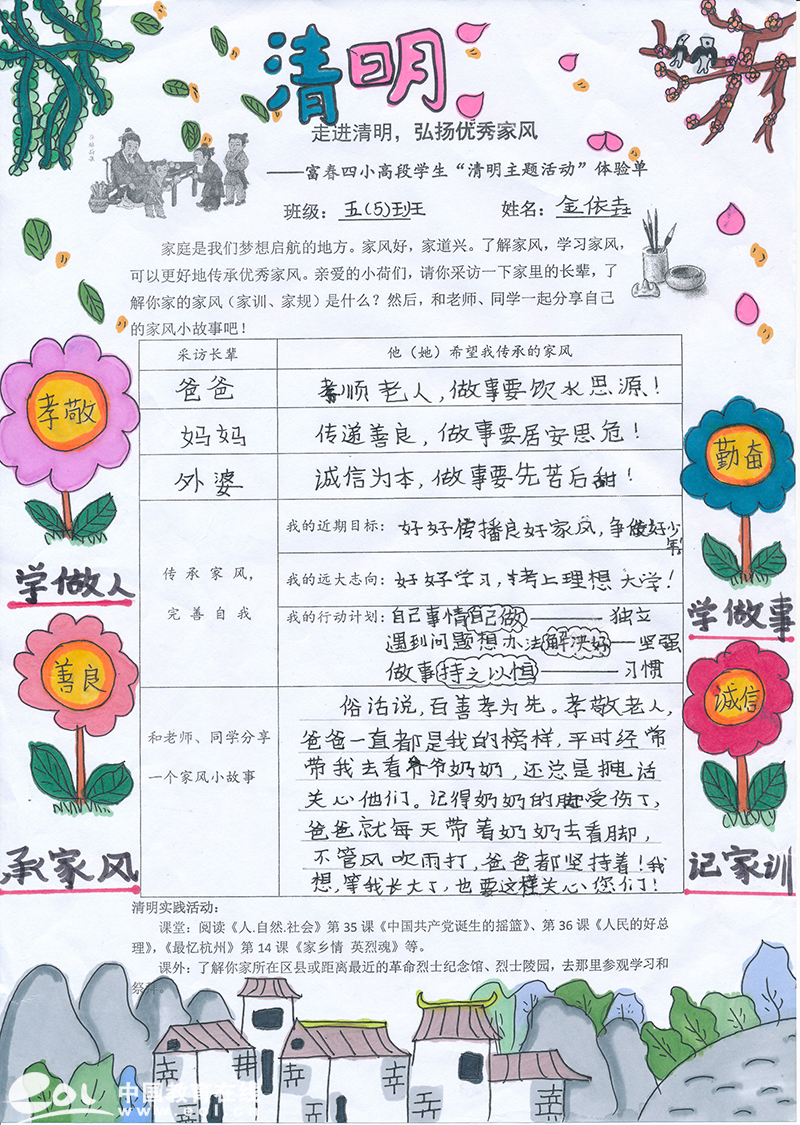 清明
走进清明，弘扬优秀家风
——富春四小高段学生“清明主题活动”体验单
班级：五(5)班 姓名：金依垚
家庭是我们梦想启航的地方。家风好，家道兴。了解家风，学习家风，
可以更好地传承优秀家风。亲爱的小荷们，请你采访一下家里的长辈，了
解你家的家风（家训、家规）是什么？然后，和老师、同学一起分享自己
的家风小故事吧！
采访长辈 他（她）希望我传承的家风
爸爸 孝顺老人，做事要饮水思源！
妈妈 传递善良，做事要居安思危！
外婆 诚信为本，做事要先苦后甜！
传承家风，
完善自我
我的近期目标：好好传播良好家风，争做好少年！
我的远大志向：好好学习，考上理想大学！
我的行动计划：自己事情自己做——独立
遇到问题想办法解决好——坚强
做事持之以恒——习惯
和老师、同学分享
一个家风小故事
俗话说，百善孝为先。孝敬老人，
爸爸一直都是我的榜样，平时经常
带我去看爷爷奶奶，还总是打电话
关心他们。记得奶奶的脚受伤了，
爸爸就每天带着奶奶去看脚，
不管风吹雨打，爸爸都坚持着！我
想，等我长大了，也要这样关心您们！
清明实践活动：
课堂：阅读《人.自然.社会》第 35 课《中国共产党诞生的摇篮》、第 36 课《人民的好总
理》，《最忆杭州》第 14 课《家乡情 英烈魂》等。
课外：了解你家所在区县或距离最近的革命烈士纪念馆、烈士陵园，去那里参观学习和
祭
孝敬
学做人
善良
承家风
勤奋
学做事
诚信
记家训
中国教育在线
www.eol.cn